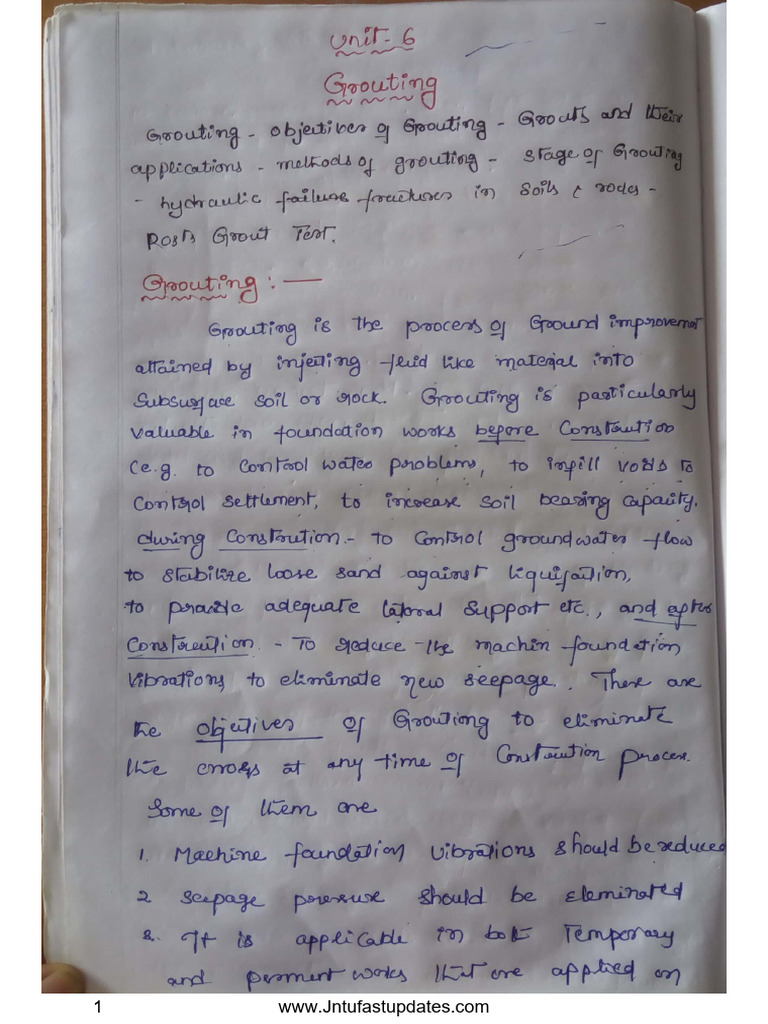 Unit - 6
Grouting
Grouting - objectives of Grouting - Grouts and their
applications - methods of grouting - stage of Grouting
- hydraulic failure fractures in soils & rocks -
Posts Grout Test.
Grouting : —
Grouting is the process of Ground improvemet
attained by injeting fluid like material into
Subsurface soil or rock. Grouting is particularly
valuable in foundation works before Constrution
(e.g. to control water problems, to infill voids to
control settlement, to increase soil bearing capacity.
during Constrution - to control groundwater flow
to stabilize loose sand against liquifation,
to provide adequate lateral support etc., and after
Constreution. - To reduce the machin foundation
vibrations to eliminate new seepage. There are
the objetives of Groutiong to eliminate
the errors at any time of Constrution process.
Some of them are
1. Machine foundation vibrations should be reduced
2. Seepage pressure should be eleminated
3. It is applicable in both Temporary
and perment works that are applied on
1 www.Jntufastupdates.com